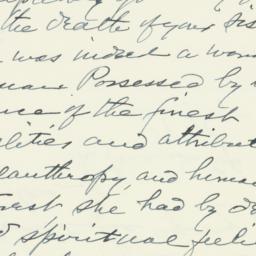 the death of your sis
was indeed a wom
Possessed by
of the finest
lities and attribut
lanthropy, and human
she had by de
spiritual feeli